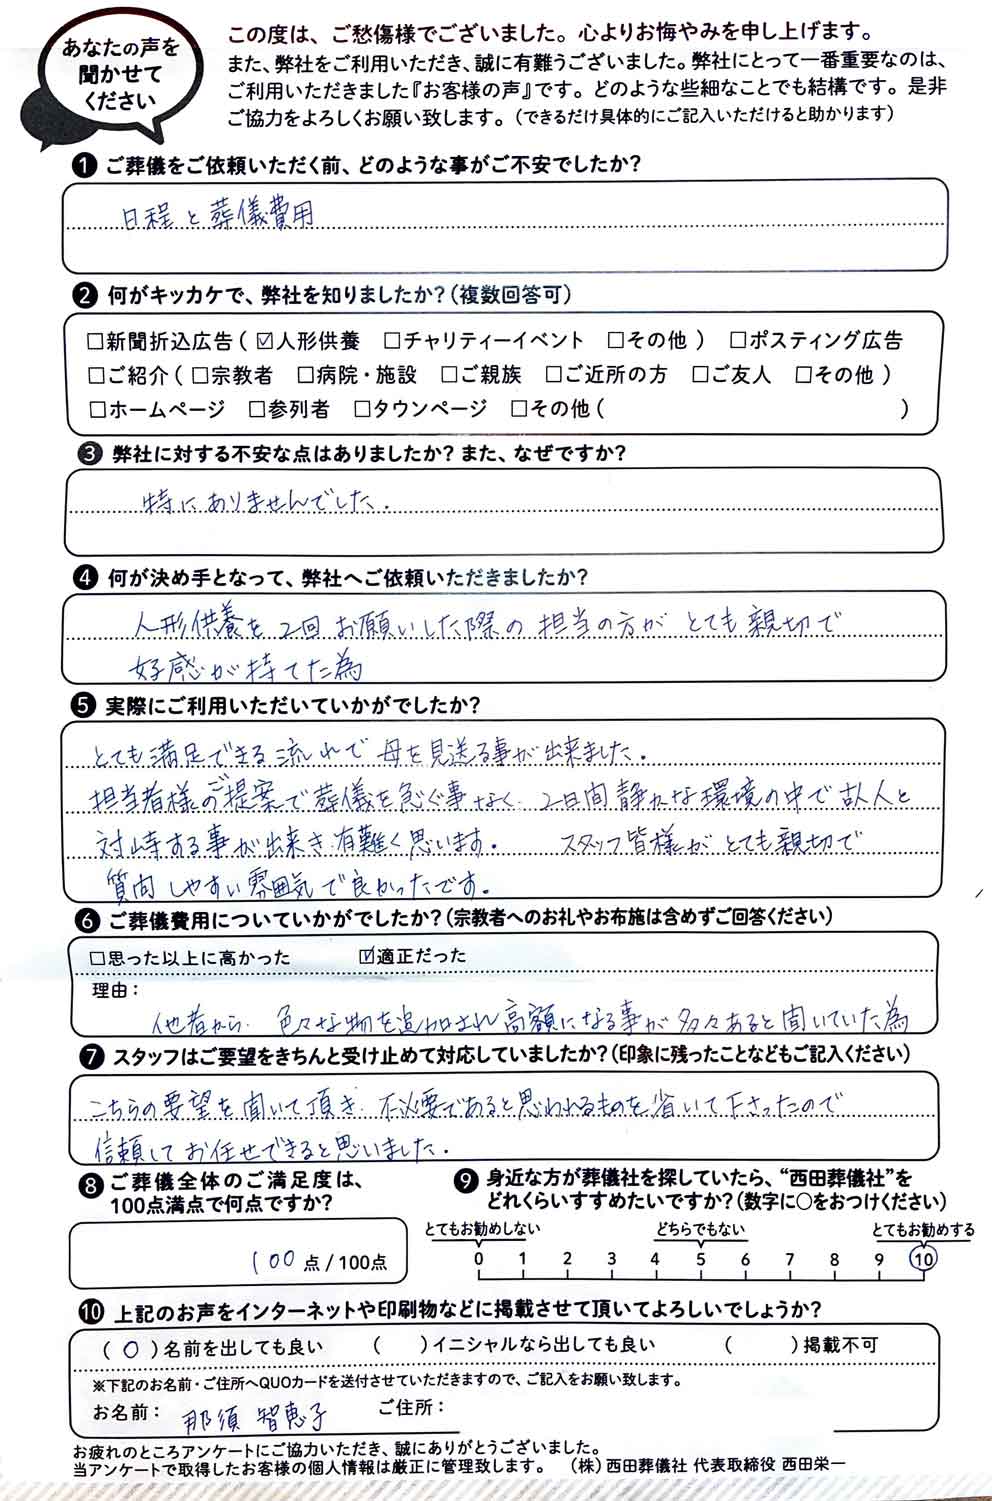 あなたの声を
聞かせて
ください
この度は、ご愁傷様でございました。心よりお悔やみを申し上げます。
また、弊社をご利用いただき、誠に有難うございました。弊社にとって一番重要なのは、
ご利用いただきました『お客様の声』です。どのような些細なことでも結構です。是非
ご協力をよろしくお願い致します。（できるだけ具体的にご記入いただけると助かります）
1 ご葬儀をご依頼いただく前、どのような事がご不安でしたか?
日程と葬儀費用
2 何がキッカケで、弊社を知りましたか?（複数回答可）
□新聞折込広告（ ☑人形供養 □チャリティーイベント □その他 ） □ポスティング広告
□ご紹介（ □宗教者 □病院・施設 □ご親族 □ご近所の方 □ご友人 □その他 ）
□ホームページ □参列者 □タウンページ □その他（ ）
3 弊社に対する不安な点はありましたか? また、なぜですか?
特にありませんでした.
4 何が決め手となって、弊社へご依頼いただきましたか?
人形供養を2回お願いした際の担当の方がとても親切で
好感が持てた為
5 実際にご利用いただいていかがでしたか?
とても満足できる流れで母を見送る事が出来ました.
担当者様のご提案で葬儀を急ぐ事なく、2日間静かな環境の中で故人と
対峙する事が出来き、有難く思います。 スタッフ皆様がとても親切で
質問しやすい雰囲気で良かったです。
6 ご葬儀費用についていかがでしたか?（宗教者へのお礼やお布施は含めずご回答ください）
□思った以上に高かった ☑適正だった
理由：
他者から、色々な物を追加され高額になる事が多々あると聞いていた為
7 スタッフはご要望をきちんと受け止めて対応していましたか?（印象に残ったことなどもご記入ください）
こちらの要望を聞いて頂き、不必要であると思われるものを省いて下さったので
信頼してお任せできると思いました.
8 ご葬儀全体のご満足度は、
100点満点で何点ですか?
100 点 / 100点
9 身近な方が葬儀社を探していたら、“西田葬儀社”を
どれくらいすすめたいですか?（数字に○をおつけください）
とてもお勧めしない どちらでもない とてもお勧めする
0 1 2 3 4 5 6 7 8 9 10
10 上記のお声をインターネットや印刷物などに掲載させて頂いてよろしいでしょうか?
（ ○ ）名前を出しても良い （ ）イニシャルなら出しても良い （ ）掲載不可
※下記のお名前・ご住所へQUOカードを送付させていただきますので、ご記入をお願い致します。
お名前： 那須 智恵子 ご住所：
お疲れのところアンケートにご協力いただき、誠にありがとうございました。
当アンケートで取得したお客様の個人情報は厳正に管理致します。 （株）西田葬儀社 代表取締役 西田栄一